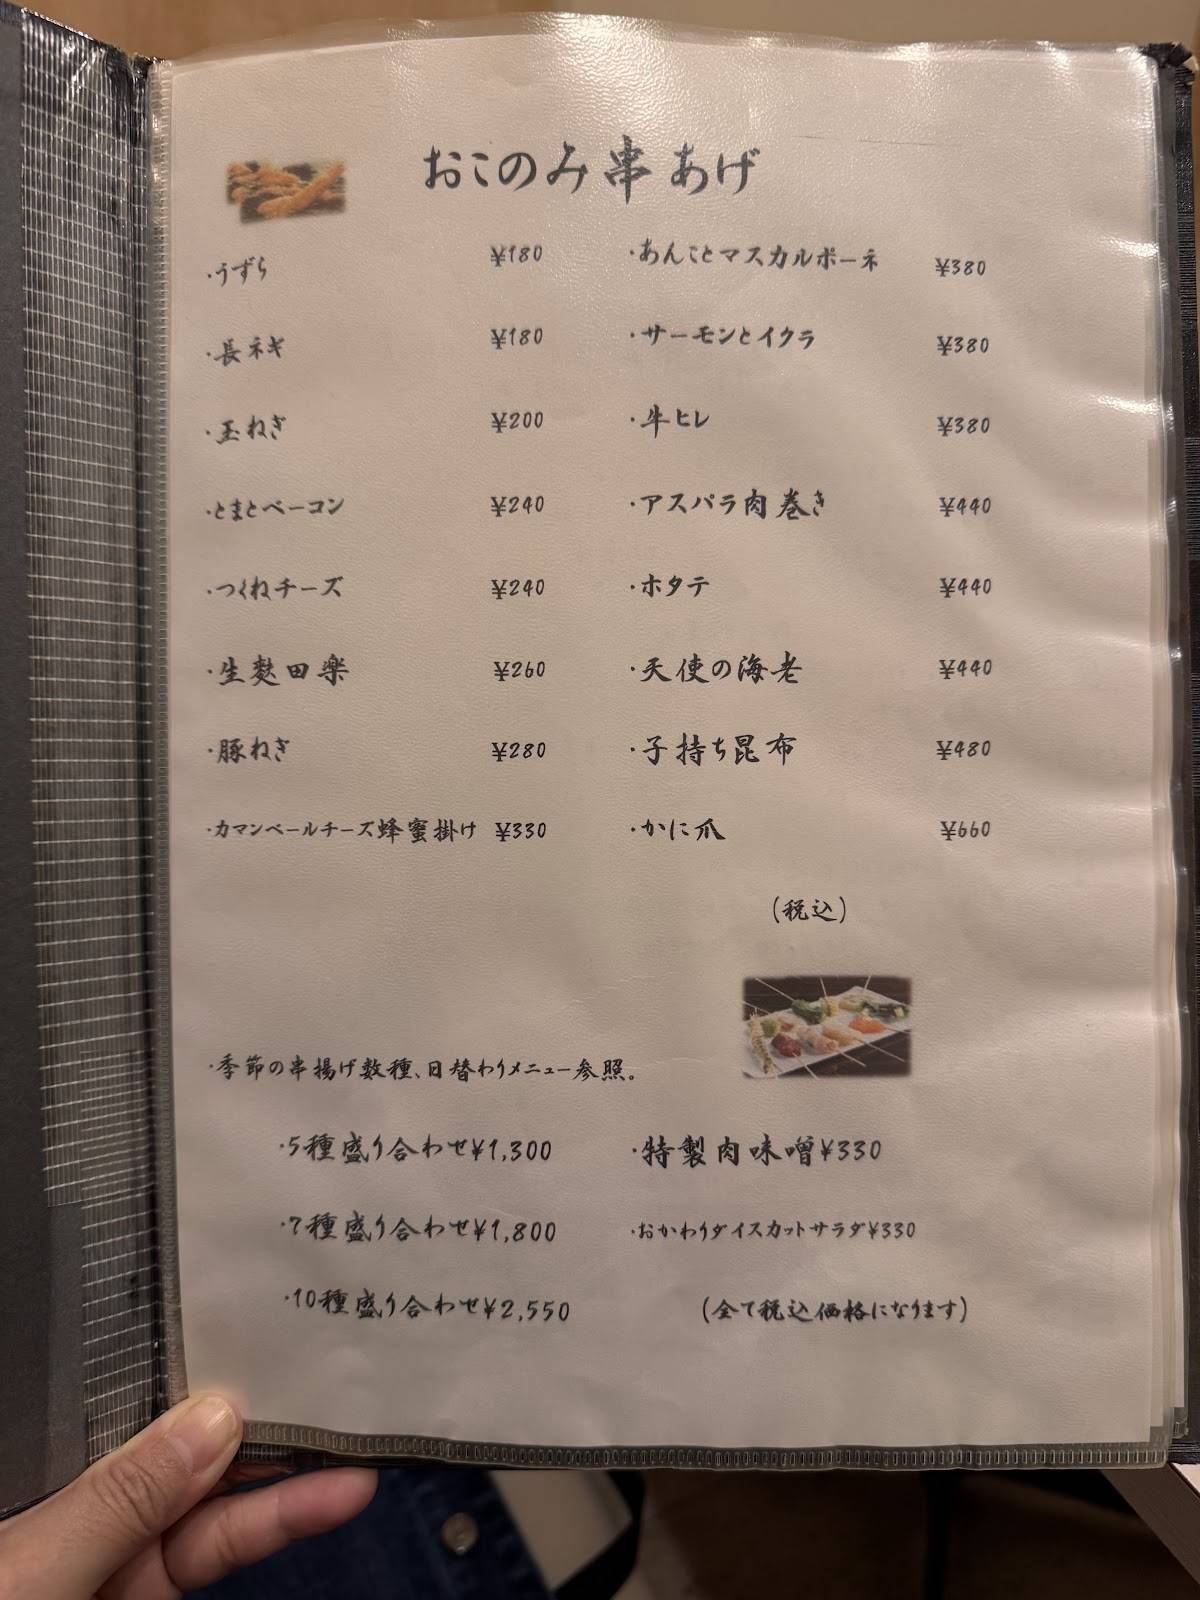 おこのみ串あげ
・うずら ¥180
・長ネギ ¥180
・玉ねぎ ¥200
・とまとベーコン ¥240
・つくねチーズ ¥240
・生麩田楽 ¥260
・豚ねぎ ¥280
・カマンベールチーズ蜂蜜掛け ¥330
・あんことマスカルポーネ ¥380
・サーモンとイクラ ¥380
・牛ヒレ ¥380
・アスパラ肉巻き ¥440
・ホタテ ¥440
・天使の海老 ¥440
・子持ち昆布 ¥480
・かに爪 ¥660
(税込)
・季節の串揚げ数種、日替わりメニュー参照。
・5種盛り合わせ¥1,300
・7種盛り合わせ¥1,800
・10種盛り合わせ¥2,550
・特製肉味噌¥330
・おかわりダイスカットサラダ¥330
(全て税込価格になります)